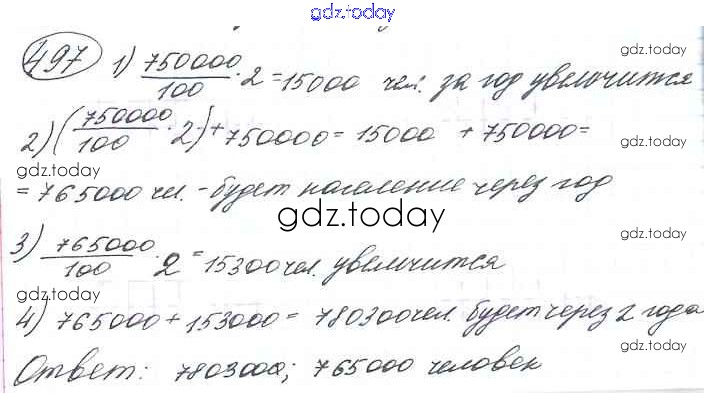 gdz.today
497 1) 750000/100 · 2 = 15000 чел. за год увеличится
gdz.today
2) (750000/100 · 2) + 750000 = 15000 + 750000 =
gdz.today
gdz.today
= 765000 чел. - будет население через год
gdz.today
gdz.today
3) 765000/100 · 2 = 15300 чел. увеличится
gdz.today
gdz.today
4) 765000 + 153000 = 780300 чел. будет через 2 года
gdz.today
gdz.today
Ответ: 7803000; 765000 человек